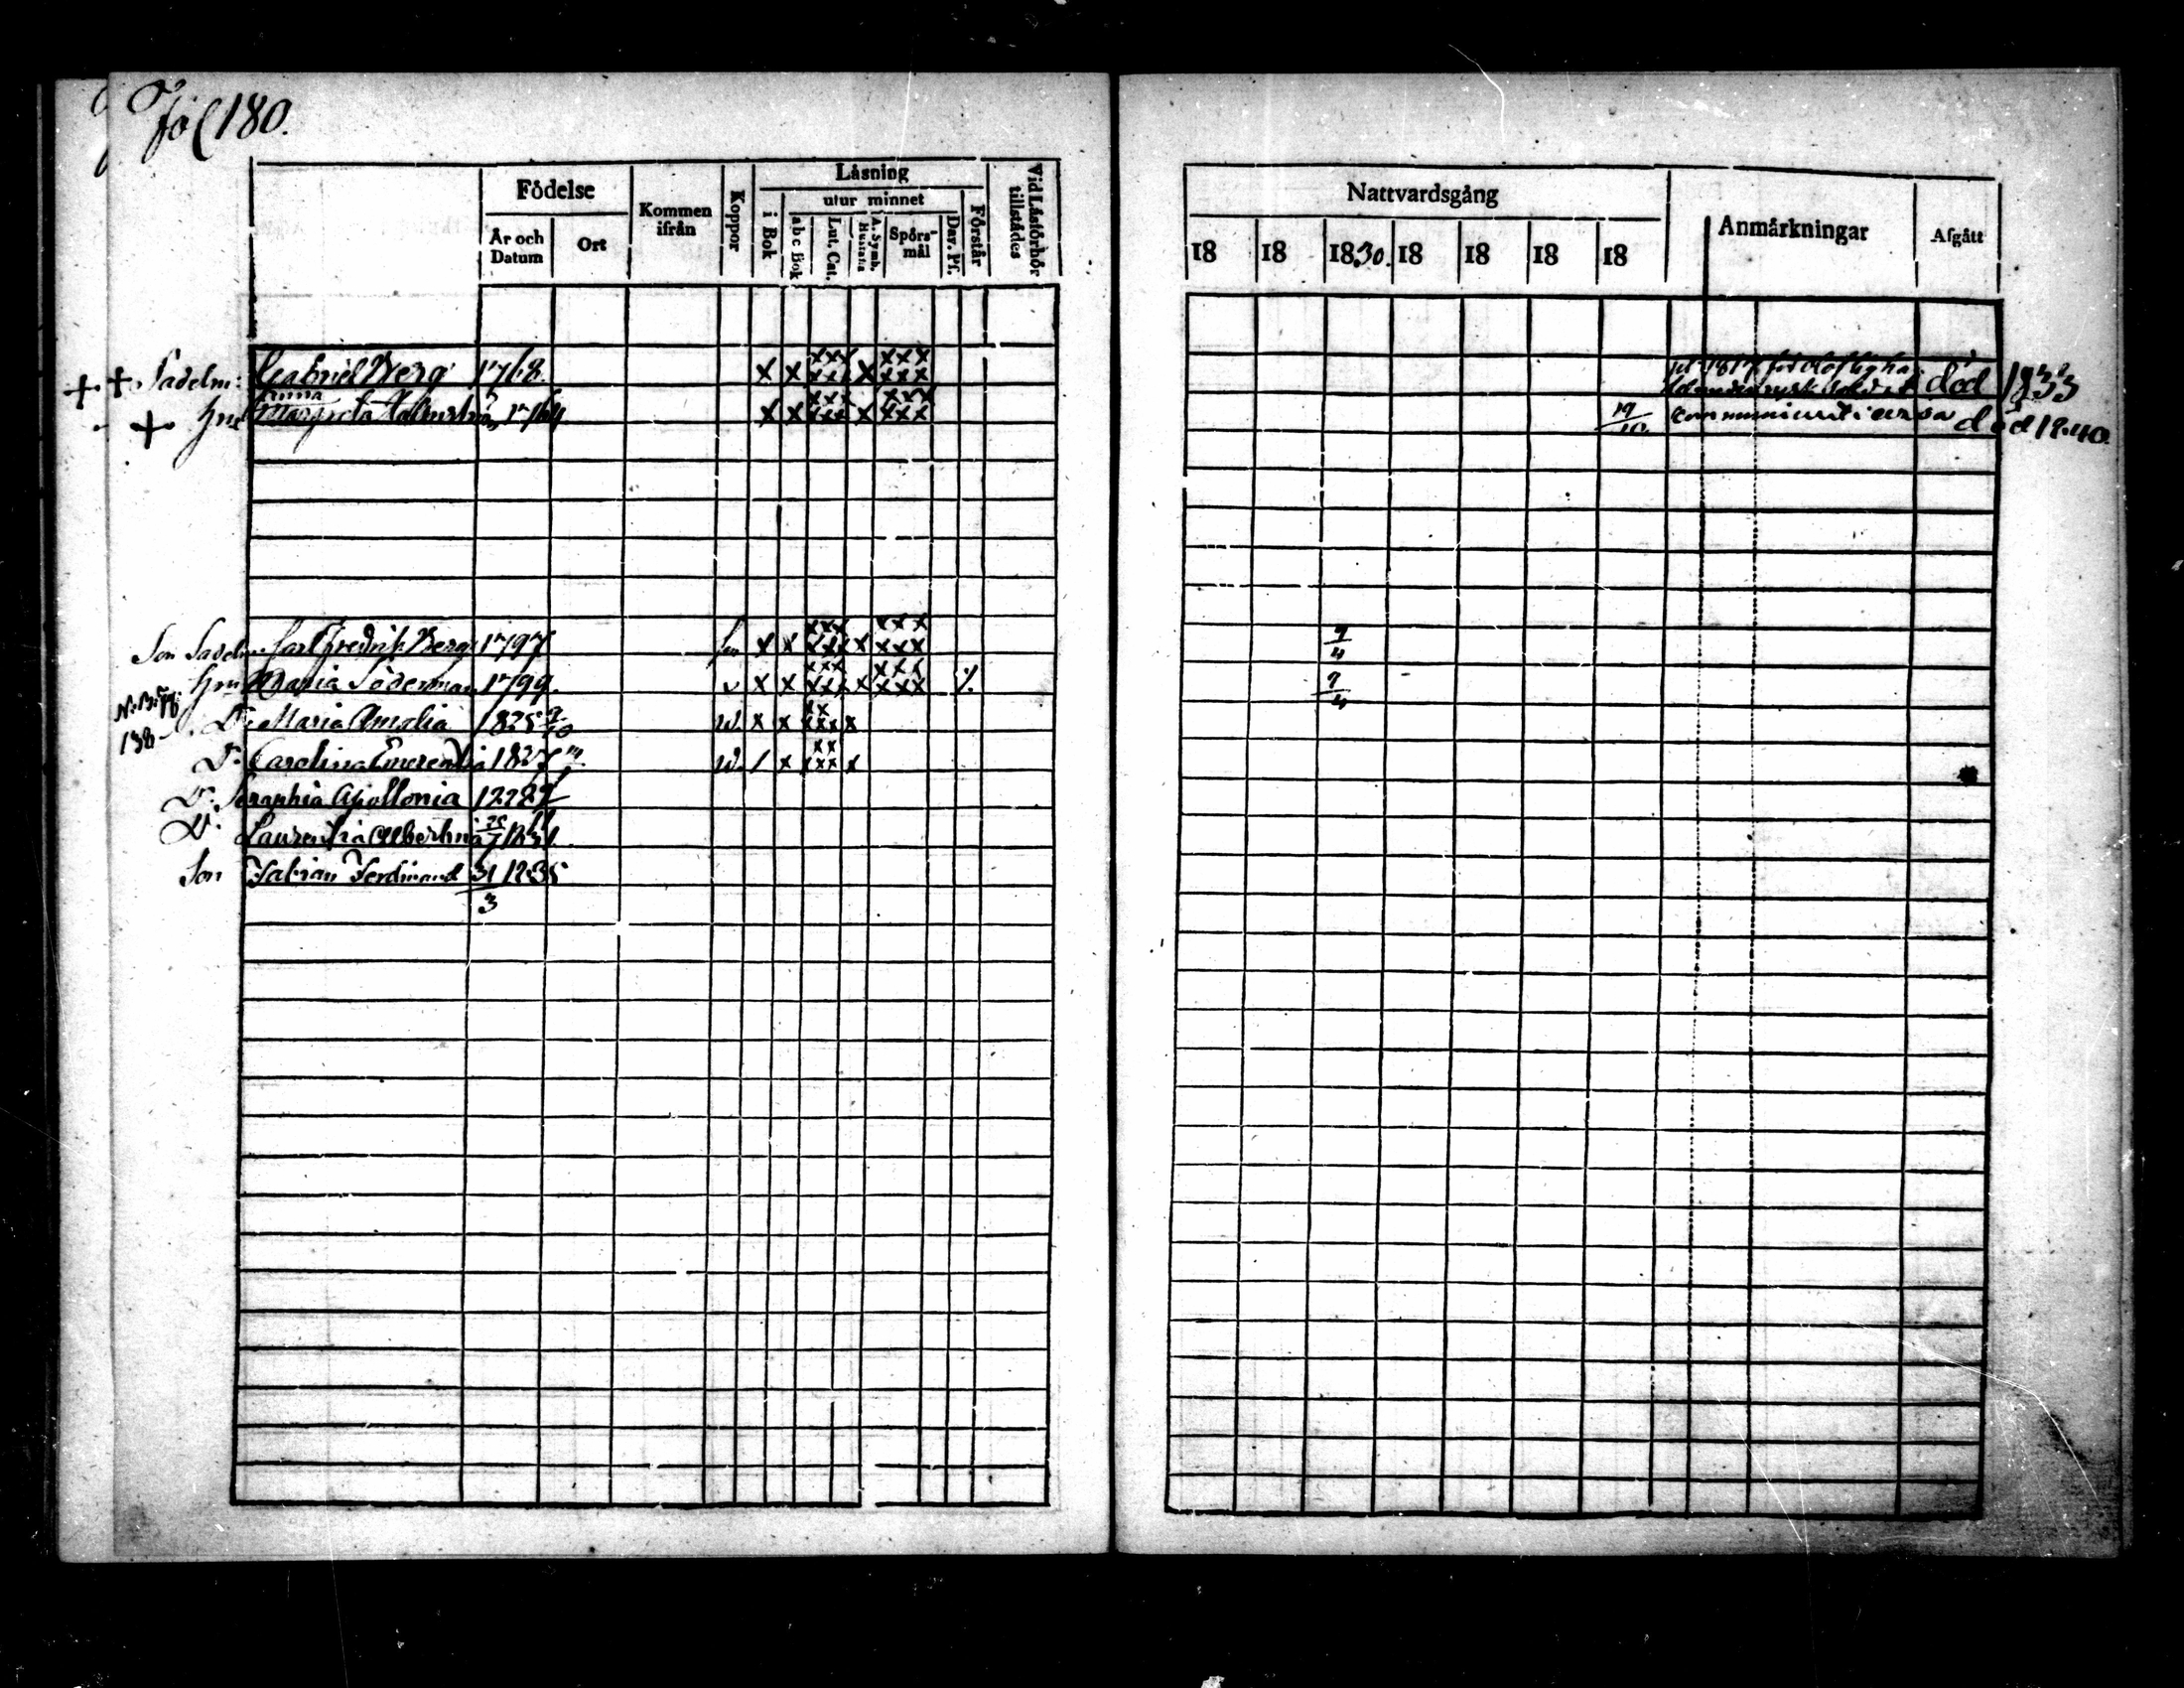 Fol 180.
Födelse
År och Datum
Ort
Kommen ifrån
Koppor
Läsning
i Bok
utur minnet
abc Bok
Lut. Cat.
A. Symb. Hustafla
Spörs-mål
Dav. Ps.
Förstår
Vid Läsförhör tillstädes
Nattvardsgång
18 18 1830. 18 18 18 18
Anmärkningar
Afgått
++ Sadelm: Gabriel Berg 1768. x x xxx xxx x xxx xxx död 1833
Anna
+ Hru Margreta 1764 x x xxx xxx x xxx xxx 19/10 död 1840.
Son Sadelm. Carl Fredrik Berg 1797 x x xxx xxx x xxx xxx 9/4
Hru Maria Söderman 1799. v x x xxx xxx x xxx xxx ⁒ 9/4
D: Maria Amalia 1825 9/10 w. x x xx xxx x
D: Carolina Emerentia 1827 w. / x xx xxx x
D: Seraphia Apollonia
D: Laurentia Albertina 25/7 1831.
Son Fabian Ferdinand 31/3 1835